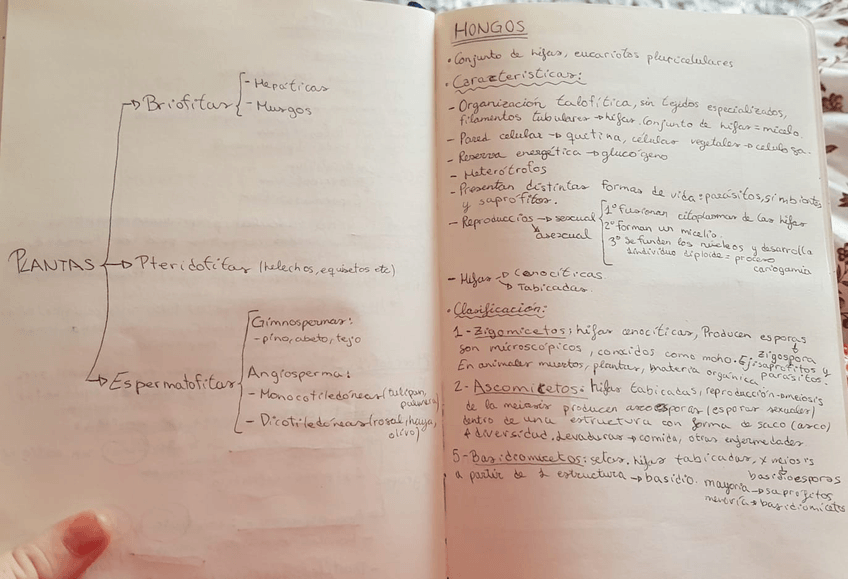 Briofitas
- Hepáticas
- Musgos
PLANTAS
Pteridofitas (helechos, equisetos etc)
Espermatofitas
Gimnospermas:
- pino, abeto, tejo
Angiosperma:
- Monocotiledóneas (tulipan,
palmera)
- Dicotiledóneas (rosal, haya,
olivo)
HONGOS
• Conjunto de hifas, eucariotos pluricelulares
• Características:
- Organización talofítica, sin tejidos especializados,
filamentos tubulares → hifas. Conjunto de hifas = micelo.
- Pared celular → quitina, células vegetales → celulosa.
- Reserva energética → glucógeno
- Heterótrofos
- Presentan distintas formas de vida: parásitos, simbiontes
y saprófitos.
- Reproducción → sexual
asexual
1º Fusionan citoplasmas de las hifas
2º forman un micelio.
3º se funden los núcleos y desarrolla
individuo diploide = proceso
cariogamia
- Hifas → Cenocíticas.
→ Tabicadas.
• Clasificación:
1 - Zigomicetos: hifas cenocíticas, Producen esporas
zigospora
son microscópicos, conocidos como moho. Ej: saprofitos y
parásitos.
En animales muertos, plantas, materia orgánica
2 - Ascomicetos: hifas tabicadas, reproducción → meiosis
de la meiosis producen ascosporas (esporas sexuales)
dentro de una estructura con forma de saco (asco)
+ diversidad. Levaduras → comida, otras enfermedades
5 - Basidiomicetos: setas. hifas tabicadas, x meiosis
basidioesporas
a partir de 1 estructura → basidio. mayoría → saprofitos
→ basidiomicetos